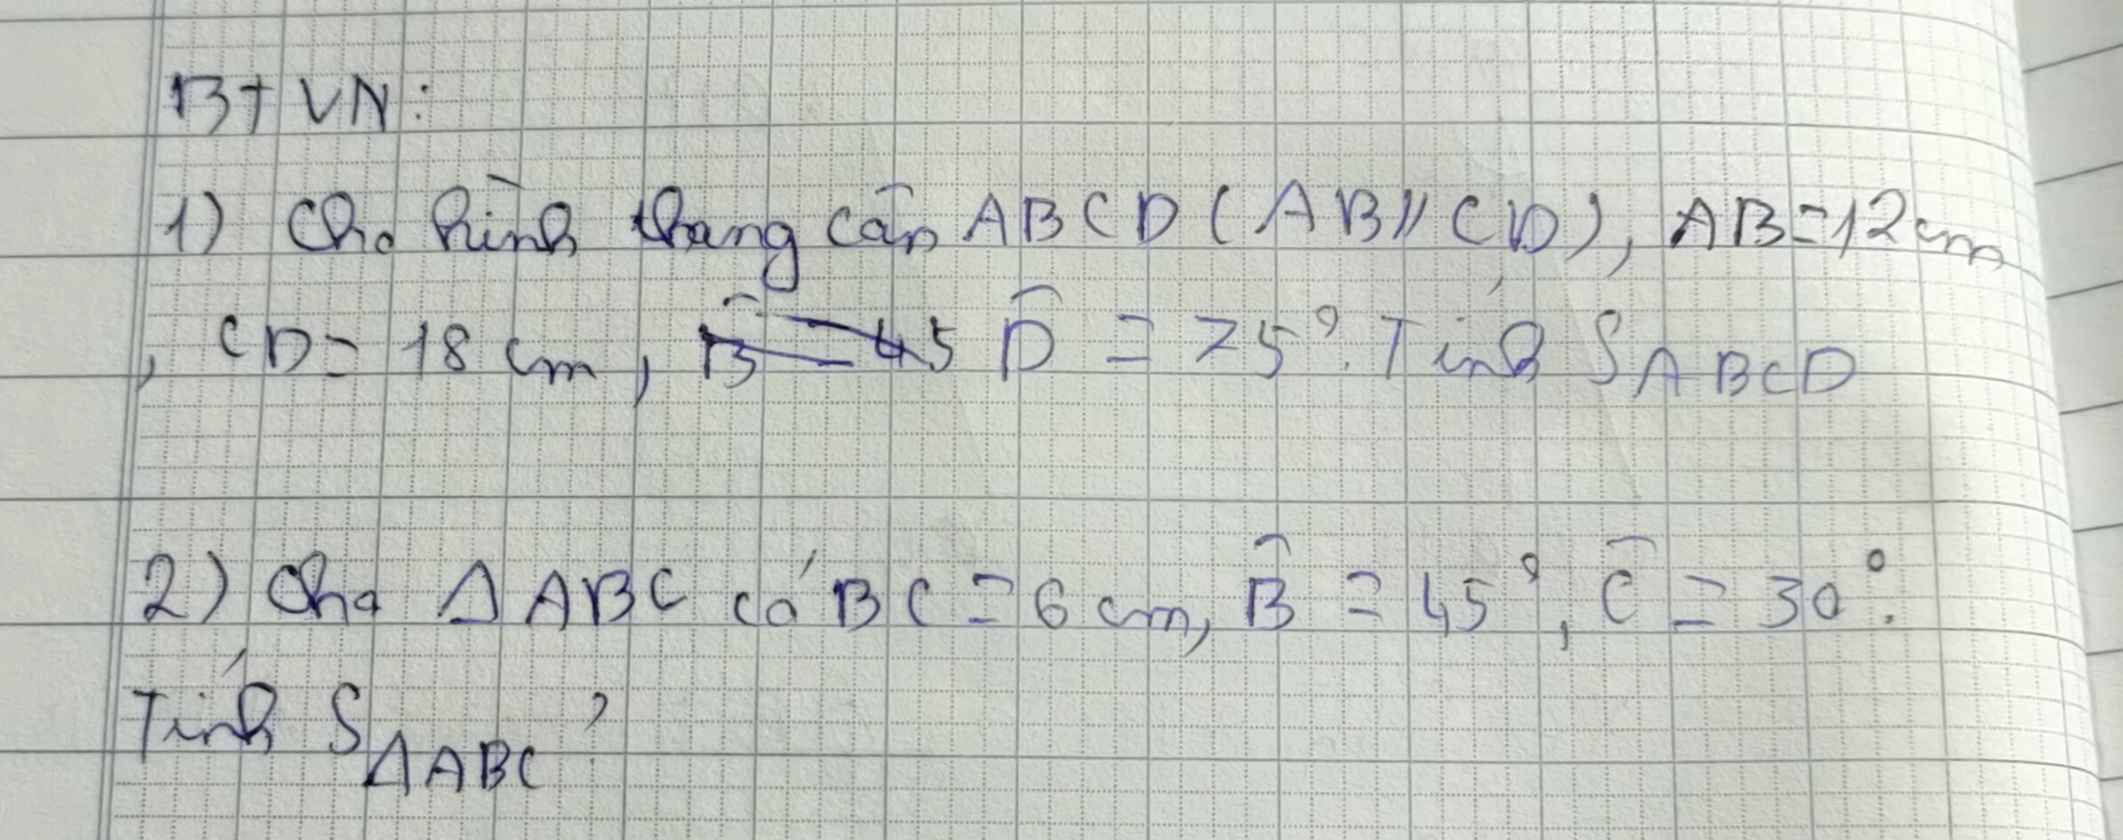 BTVN:
1) Cho hình thang cân ABCD (AB // CD), AB = 12 cm
, CD = 18 cm, D̂ = 75°. Tính S_ABCD
2) Cho ΔABC có BC = 6 cm, B̂ = 45°, Ĉ = 30°.
Tính S_ΔABC ?